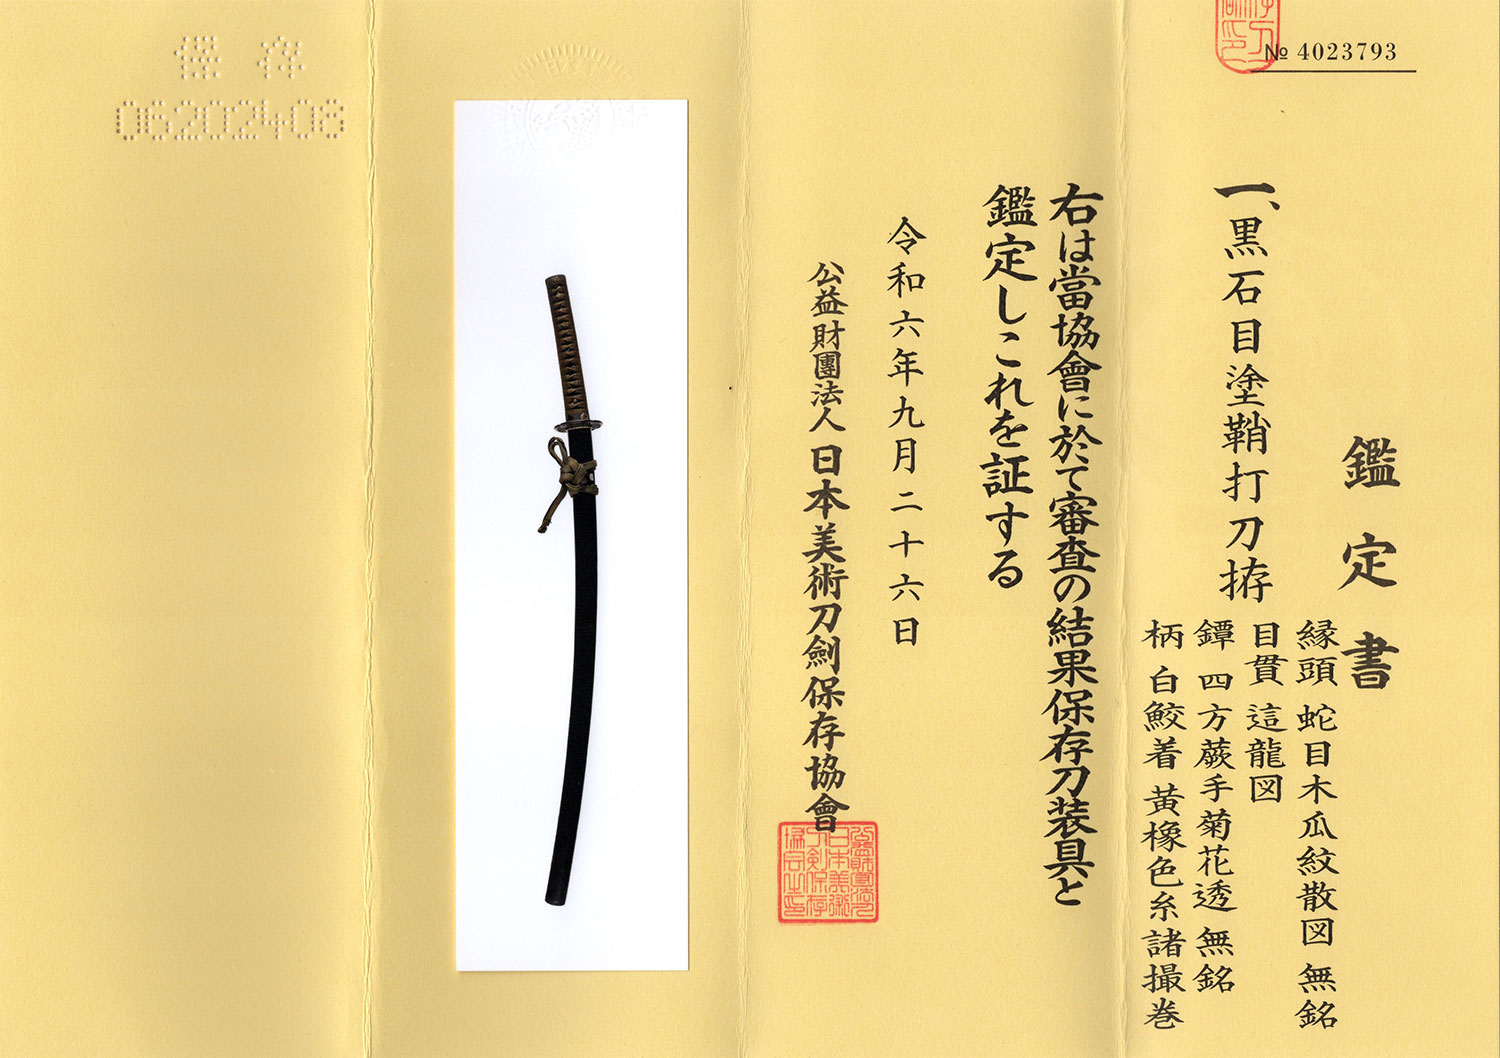 № 4023793
鑑定書
一、黒石目塗鞘打刀拵
縁頭 蛇目木瓜紋散図 無銘
目貫 這龍図
鐔 四方蕨手菊花透 無銘
柄 白鮫着 黄橡色糸諸撮巻
右は當協會に於て審査の結果保存刀装具と
鑑定しこれを証する
令和六年九月二十六日
公益財團法人 日本美術刀劍保存協會
保存
06202408